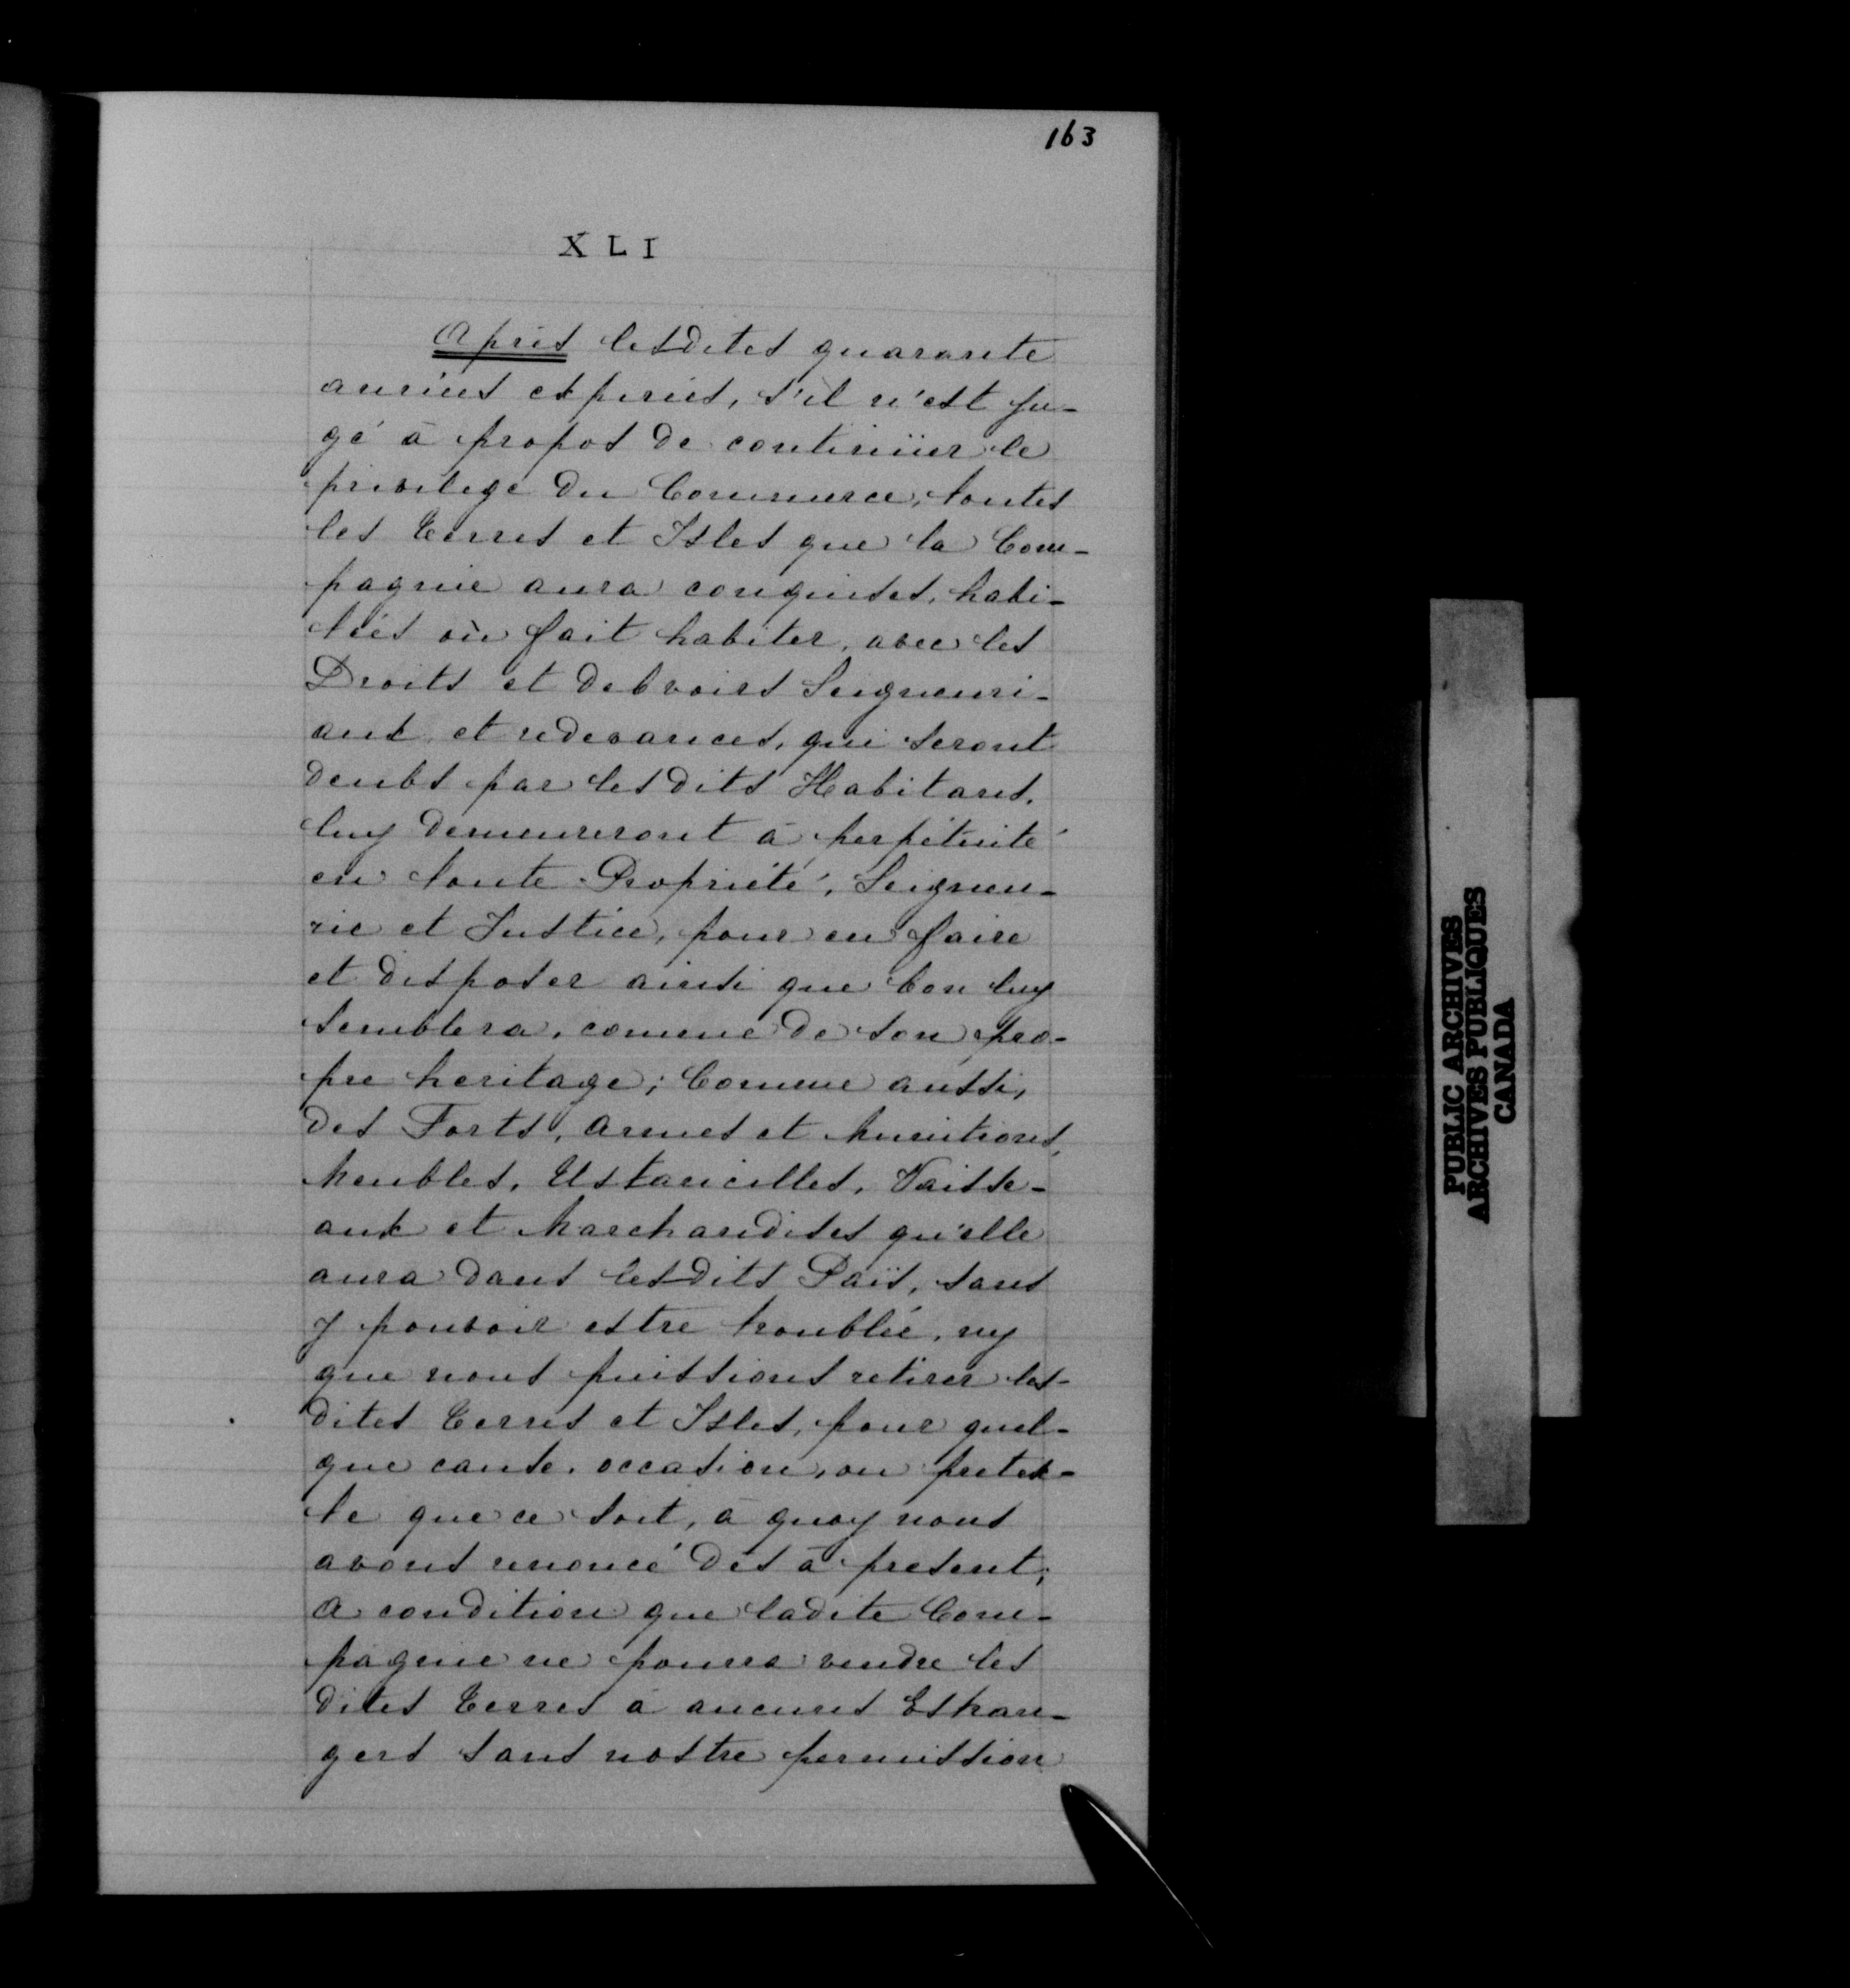 163
XLI
Aprés lesdites quarante
années expirées, s'il n'est ju-
gé à propos de continüer le
privilege du Commerce, toutes
les Terres et Isles que la Com-
pagnie aura conquises, habi-
tées où fait habiter, avec les
Droits et debvoirs Seigneuri-
aux et redevances, qui seront
deubs par lesdits Habitans,
luy demeureront à perpétuité
en toute Propriété, Seigneu-
rie et Justice, pour en faire
et disposer ainsi que bon luy
semblera, comme de son pro-
pre heritage; Comme aussi,
des Forts, armes et Munitions,
Meubles, Ustancilles, Vaisse-
aux et Marchandises qu'elle
aura dans lesdits Païs, sans
y pouvoir estre troublée, ny
que nous puissions retirer les-
dites Terres et Isles, pour quel-
que cause, occasion, ou pretex-
te que ce soit, à quoy nous
avons renoncé dés à present;
A condition que ladite Com-
pagnie ne pourra vendre les
dites Terres à aucuns Estran-
gers sans nostre permission
PUBLIC ARCHIVES
ARCHIVES PUBLIQUES
CANADA